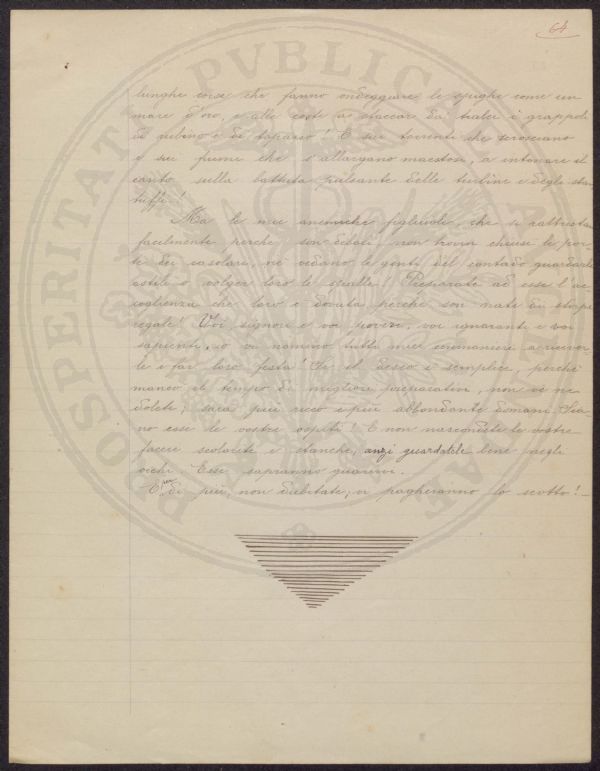 64
lunghe corse che fanno ondeggiare le spighe come un
mare d'oro, e alle coste a staccar da' tralci i grappoli
di rubino e di topazio! E sui torrenti che scrosciano
e sui fiumi che s'allargano maestosi, a intonare il
canto sulla battuta pulsante delle turbine e degli stan
tuffi.
Ma le mie figliuole, che si rattristan
facilmente perchè son deboli, non trovin chiuse le por
te dei casolari, nè vedano le genti del contado guardarle
ostili o volger loro le spalle! Preparate ad esse l'ac
coglienza che loro è dovuta perchè son nate di stirpe
regale! Voi, signori e voi poveri, voi ignoranti e voi
sapienti, io vi nomino tutti miei cerimonieri a ricever
le e far loro festa! Se il desco è semplice, perchè
mancò il tempo di migliori preparativi, non ve ne
dolete; sarà più ricco e più abbondante domani. Sia
no esse le vostre ospiti! E non nascondete le vostre
facce scolorite e stanche, anzi guardatele bene negli
occhi. Esse sapranno guarirvi.
E per di più, non dubitate, vi pagheranno lo scotto!
PROSPERITATI PVBLICAE